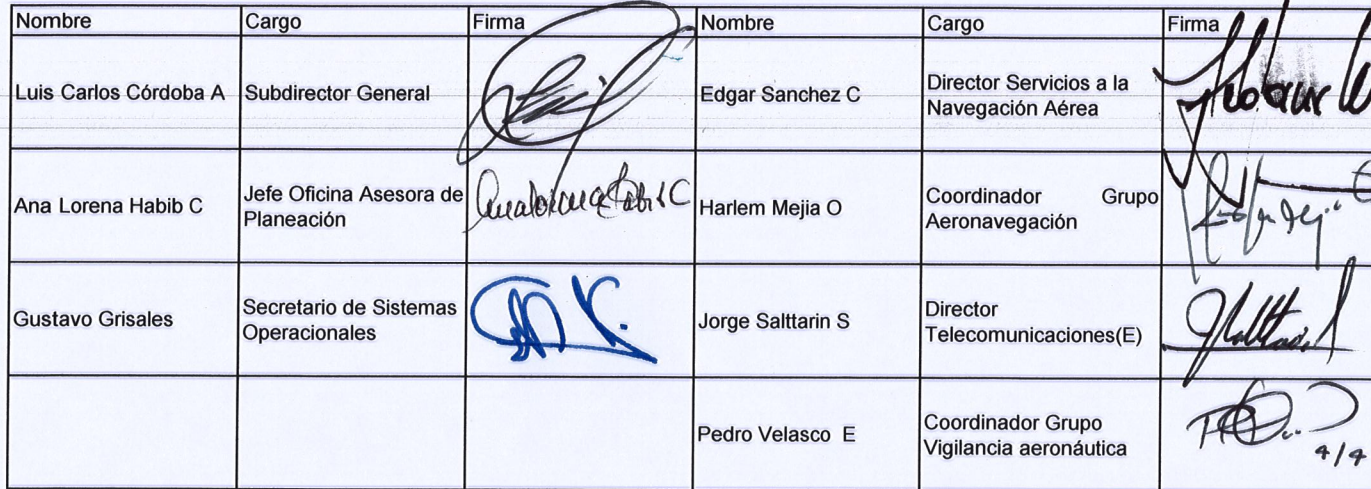 Nombre Cargo Firma Nombre Cargo Firma
Luis Carlos Córdoba A Subdirector General Edgar Sanchez C Director Servicios a la
Navegación Aérea
Ana Lorena Habib C Jefe Oficina Asesora de
Planeación
Harlem Mejia O Coordinador Grupo
Aeronavegación
Gustavo Grisales Secretario de Sistemas
Operacionales
Jorge Salttarin S Director
Telecomunicaciones(E)
Pedro Velasco E Coordinador Grupo
Vigilancia aeronáutica
4/4